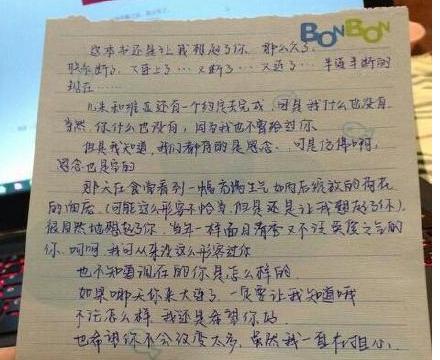 BONBON
这本书还是让我想起了你，那么久了，
联系断了，又连上了…又断了…又连了…半连半断的
现在……
和谁还有一个约定未完成，可是我什么也没有
当然，你什么也没有，因为我也不曾给过你
但是我知道，我们都有的是思念，可是
思念也是空的
那天在食堂看到一幅充满生气如雨后绽放的荷花
的油画，(可能这么形容不恰当，但是还是让我想起了你)，
很自然地想起了你，当年一样面目清秀又不失英气的
你，呵呵，我可从来没这么形容过你
也不知道现在的你是怎么样的
如果哪天你来大连了，一定要让我知道哦
不论怎么样，我还是希望你好
也希望你不会改变太多，虽然我一直在担心